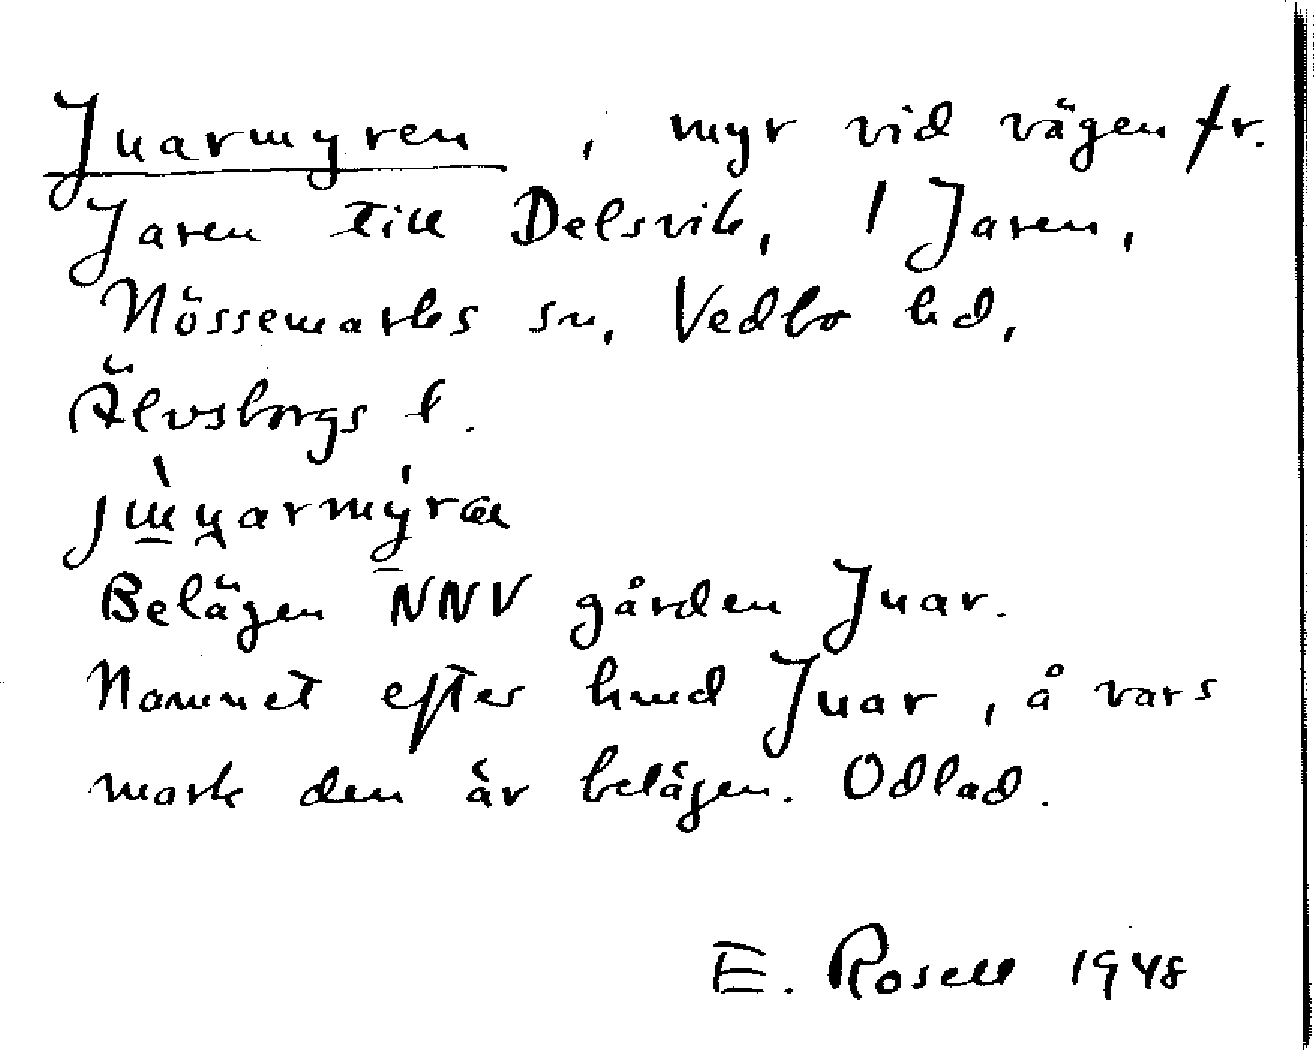 Juarmyren, myr vid vägen fr.
Jaren till Delsvik, 1 Jaren,
Nössemarks sn, Vedbo hd,
Älvsborgs l.
Belägen NNV gården Juar.
Namnet efter hmd Juar, å vars
mark den är belägen. Odlad.
E. Rosell 1948